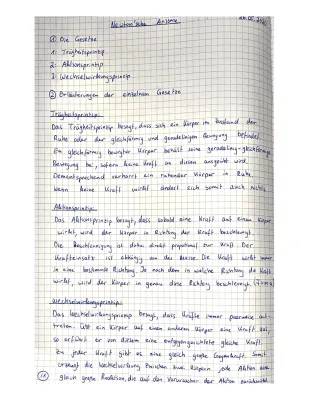 Newton'sche Axiome
① Die Gesetze
1. Trägheitsprinzip
2. Aktionsprinzip
3. Wechselwirkungsprinzip
② Erläuterungen der einzelnen Gesetze
Trägheitsprinzip:
Das Trägheitsprinzip besagt, dass sich ein Körper im Zustand der
Ruhe oder der gleichförmig und geradlinigen Bewegung befindet.
Ein gleichförmig bewegter Körper behält seine geradlinig-gleichförmige
Bewegung bei, sofern keine Kraft an diesen ausgeübt wird.
Dementsprechend verharrt ein ruhender Körper in Ruhe.
Wenn keine Kraft wirkt ändert sich somit auch nichts.
Aktionsprinzip:
Das Aktionsprinzip besagt, dass sobald eine Kraft auf einen Körper
wirkt, wird der Körper in Richtung der Kraft beschleunigt.
Die Beschleunigung ist dabei direkt proportional zur Kraft. Der
Krafteinsatz ist abhängig von der Masse. Die Kraft wirkt immer
in eine bestimmte Richtung. Je nach dem in welche Richtung die Kraft
wirkt, wird der Körper in genau diese Richtung beschleunigt.
Wechselwirkungsprinzip:
Das Wechselwirkungsprinzip besagt, dass Kräfte immer paarweise auf-
treten. Übt ein Körper auf einen anderen Körper eine Kraft aus,
so erfährt er von diesem eine entgegengerichtete gleiche Kraft.
Zu jeder Kraft gibt es eine gleich große Gegenkraft. Somit
erzeugt die Wechselwirkung zwischen zwei Körpern jede Aktion eine
gleich große Reaktion, die auf den Verursacher der Aktion zurückwirkt